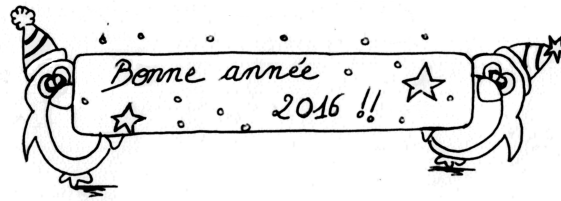 Bonne année
2016 !!